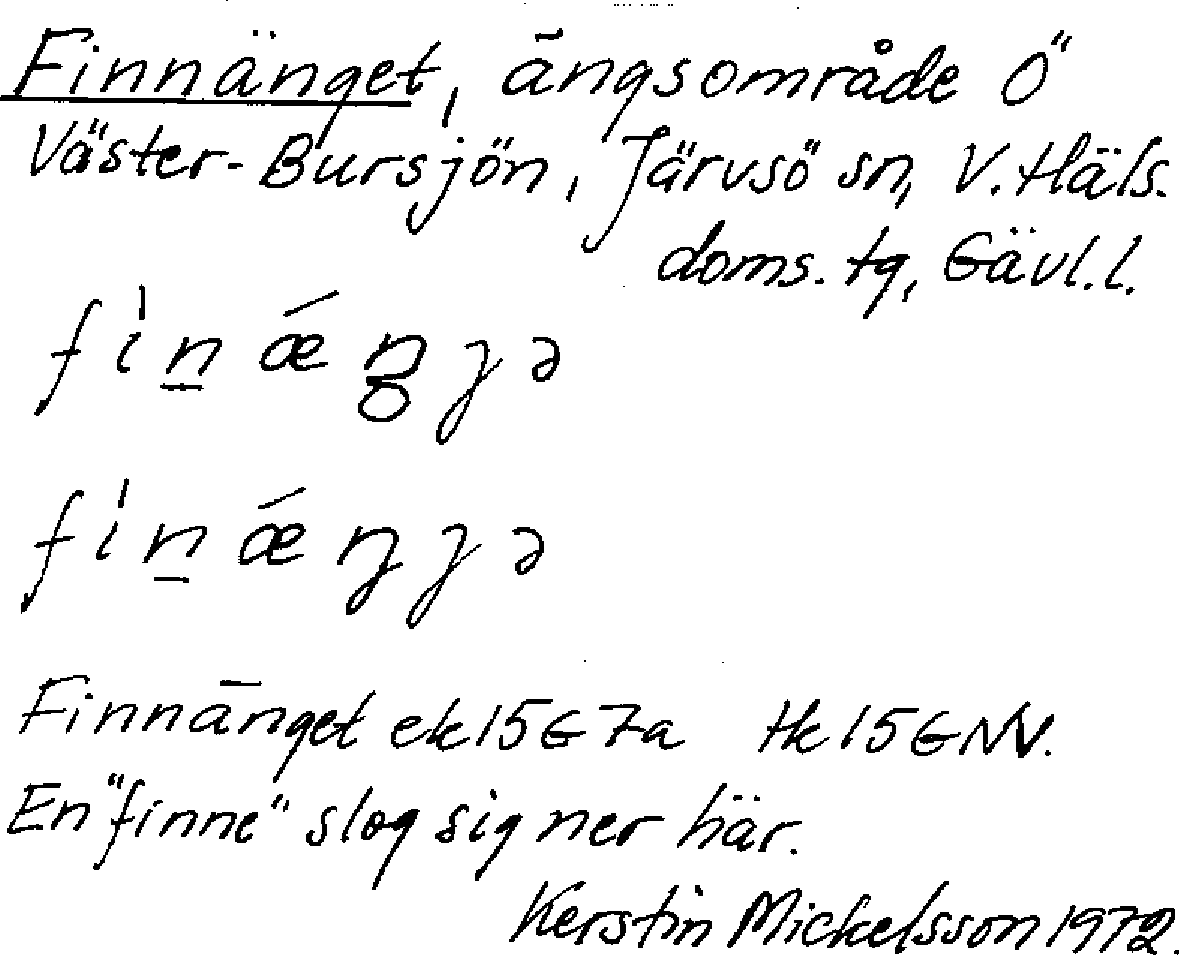 Finnänget, ängsområde Ö
Väster-Bursjön, Järvsö sn, V. Häls.
doms. tg, Gävl. l.
Finnänget ek 15G7a Hk 15GNV.
En "finne" slog sig ner här.
Kerstin Mickelsson 1972.